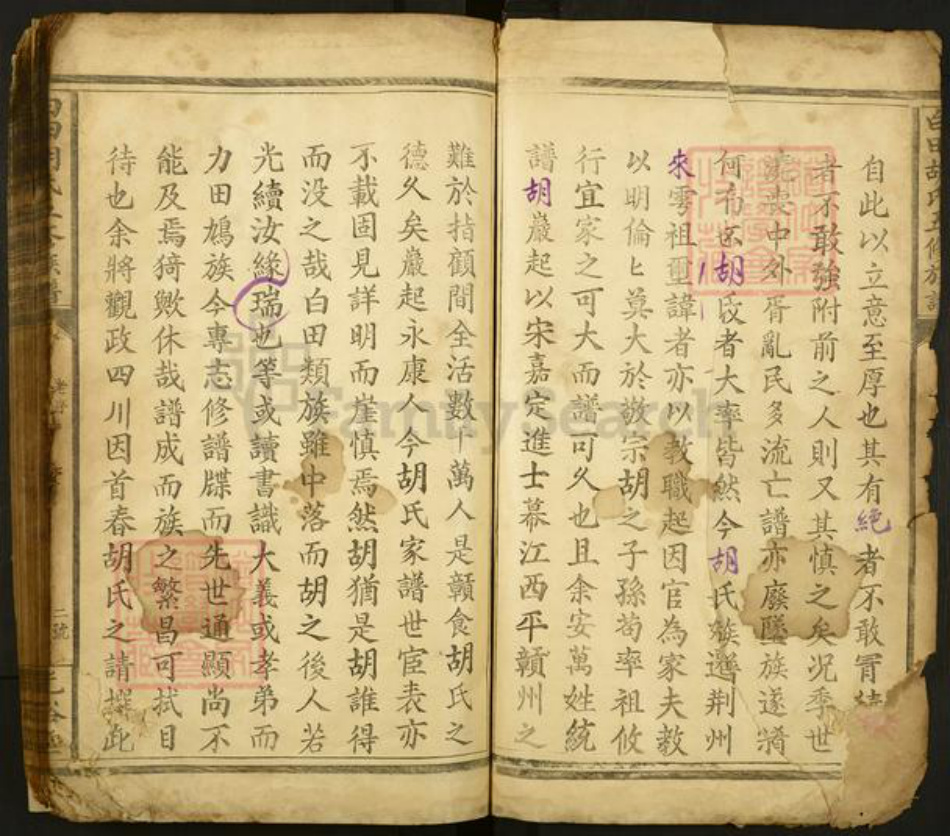 自此以立意至厚也其有絕者不敢冒續
者不敢強附前之人則又其慎之矣況季世
喪中外胥亂民多流亡譜亦廢墜族遂淆
何胡氏者大率皆然今胡氏族遷荆州
來雩祖璽諱者亦以教職起因官為家夫教
以明倫匕莫大於敬宗胡之子孫苟率祖攸
行宜家之可大而譜可久也且余安萬姓統
譜胡巖起以宋嘉定進士幕江西平贛州之
難於指顧間全活數十萬人是贛食胡氏之
德久矣巖起永康人今胡氏家譜世宦表亦
不載固見詳明而崖慎焉然胡猶是胡誰得
而没之哉白田類族雖中落而胡之後人若
光續汝緣瑞也等或讀書識大義或孝弟而
力田鳩族今專志修譜牒而先世通顯尚不
能及焉猗歟休哉譜成而族之繁昌可拭目
待也余將觀政四川因首春胡氏之請撰此
白田胡氏五修族譜
二號
FamilySearch